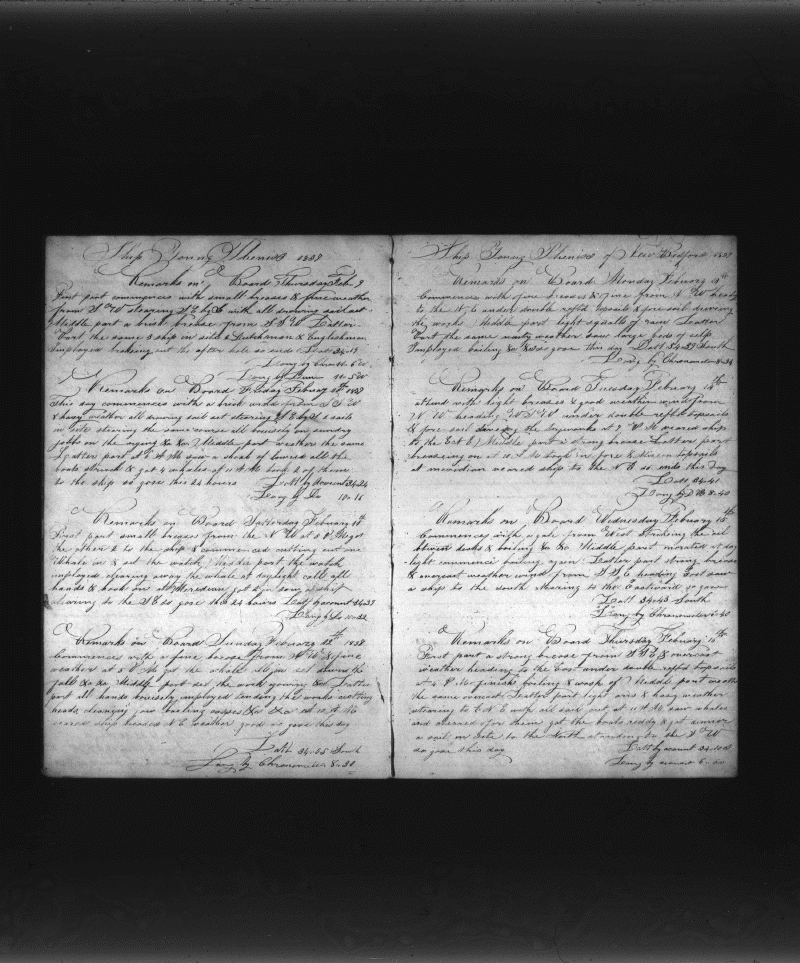 Ship Young Phenix 1838
Remarks on Board Thursday Feb 9
First part commences with small breezes & fine weather
from steering with all drawing sail set
Middle part a brisk breese from Latter
Part the same 3 ship in site a Dutchman & Englishman
Imployed braking out the after hole so ends Latt 34-19
Long by
Long by
Remarks on Board Friday Febuary 10th 1838
This day commences with a brisk wind from
& hazy weather all drawing sail set stearing sails
in site steering the same course all buisely on sundry
jobbs on the riging &c &c Middle part weather the same
Latter part at A M saw a shoal of lowed all the
boats struck & got 4 whales at 11 A M 2 of them
to the ship so goes this 24 hours Latt by 34-24
Long by Do 10-16
Remarks on Board Satterday February 11th
First part small breeses from the N W at P M got
the other 2 to the ship & commenced cutting got one
Whale in & set the watch Middle part the watch
imployed clearing away the whale at daylight call all
hands & hook on all Meredian got
stearing to the so goes this 24 hours Latt by account
Long by Do 10-32
Remarks on Board Sunday February 12th 1838
Commences with a fine breese from N W & fine
weather at 5 P M got the whale
fall &c &c Middle part set the work going &c Latter
part all hands buisely imployed tending the works
heads, cleaning jaw boiling &c &c at 10 A M
weared ship headed N E weather good so goes this day
Latt 34-35 South
Long by Chronometer 8-30
Ship Young Phenix of New Bedford 1838
Remarks on Board Monday Febuary 13th
Commences with fine breeses & fine from N W heading
to the N E under double refft topsails & fore sail driveing
the works Middle part light squalls of rain Latter
Part the same weather saw large beds of
Imployed boiling &c &c so goes this day Latt 34-39 South
Long by Chronometer 8-34
Remarks on Board Tuesday Febuary 14th
attend with light breases & good weather wind from
N W heading W S W under double refft topsails
& fore sail driveing the tryworks at 7 P M weared ship
to the Middle part a strong breese Latter part
breaseing on at 10 A M took in fore & Mizen topsails
at meridian weared ship to the N E so ends this Day
Latt 34-41
Long by 8-40
Remarks on Board Wednesday Febuary 15th
Commences with a gale from West Strikeing the oil
between decks & boiling &c &c Middle part moderate at day
light commence boiling again Latter part strong breeses
& overcast weather wind from heading East saw
a ship to the south stearing to the Eastward so goes
Latt 34-43 South
Long by Chronometer 6-40
Remarks on Board Thursday Febuary 16th
First part a strong breese from & overcast
weather heading to the East under double refft topsails
at 6 P M finish boiling & wash of Middle part weather
the same overcast Latter part light airs & hazy weather
stearing to E N E with all sail out at 11 A M saw whales
and steered for them got the boats reddy &
a sail in site to the North standing to the
so goes this day Latt by account
Long by account